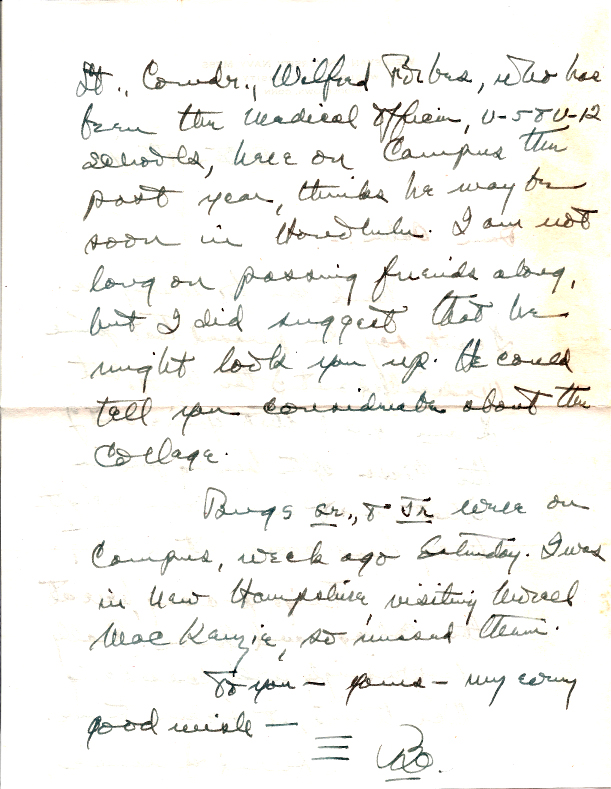 Lt., Comdr., Wilfred Forbes, who has
been the Medical Officer, V-5 & V-12
schools, here on Campus the
past year, thinks he may be
soon in Honolulu. I am not
long on passing friends along,
but I did suggest that he
might look you up. He could
tell you considerable about the
College.
Bugs Sr., & Jr were on
Campus, week ago Saturday. I was
in New Hampshire, visiting
MacKenzie, so missed them.
To you – yours – my every
good wish –
Bo.